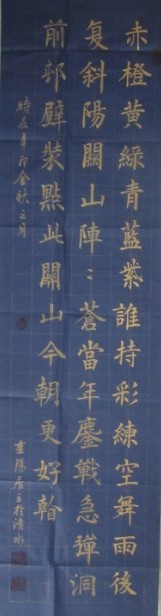 赤橙黄綠青藍紫誰持彩練空舞雨後
复斜陽關山陣〻蒼當年鏖戰急彈洞
前邨壁裝點此關山今朝更好看
時在辛卯金秋之月
重陽居士於清水